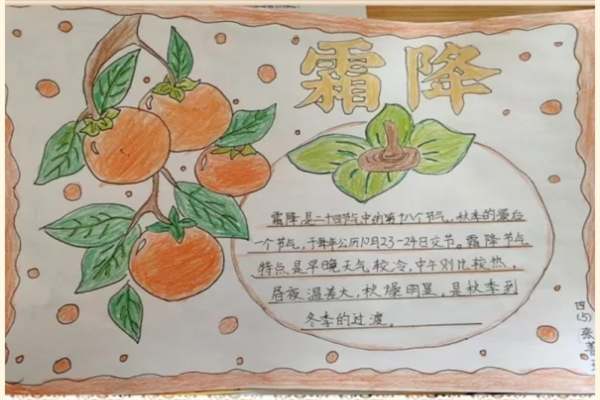 霜降
霜降是二十四节气中的第十八个节气，秋季的最后
一个节气，于每年公历10月23-24日交节。霜降节气
特点是早晚天气较冷，中午则比较热，
昼夜温差大，秋燥明显。是秋季到
冬季的过渡。
四(5)